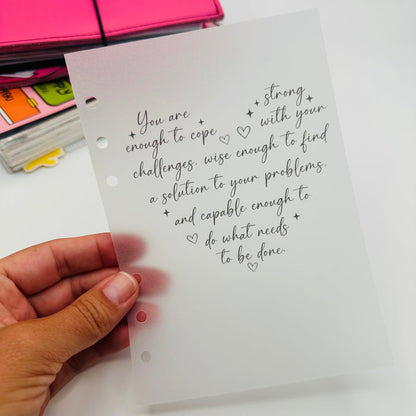 You are strong
enough to cope with your
challenges, wise enough to find
a solution to your problems,
and capable enough to
do what needs
to be done.